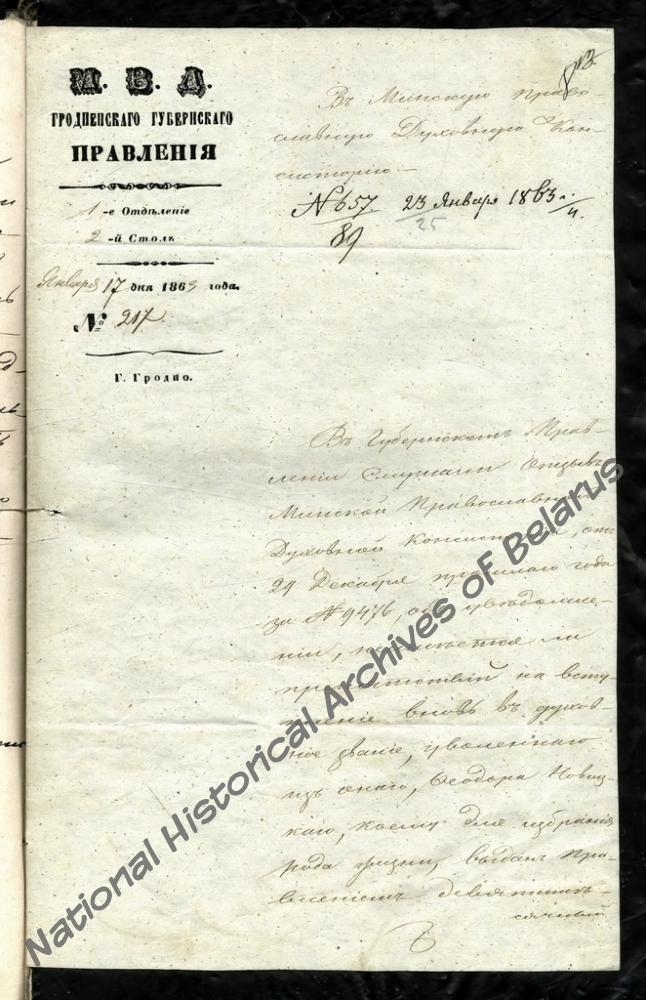 М. В. Д.
ГРОДНЕНСКАГО ГУБЕРНСКАГО
ПРАВЛЕНІЯ
1-е Отдѣленіе
2-й Столъ
Января 17 дня 1863 года.
№ 217
Г. Гродно.
Въ Минскую Право
славную Духовную Кон-
систорію.-
№ 657. 23 Января 1863
25
89
Въ Губернскомъ Прав-
леніи Слушали Отзывъ
Минской Православной
Духовной Консисторіи, отъ
29 Декабря прошлаго года
за № 9476, объ увѣдомле-
ніи, имѣется ли
препятствій на всту-
пленіе вновь въ духов-
ное званіе, уволеннаго
изъ онаго, Ѳеодора Новиц-
каго, коему для избранія
рода жизни, выданъ Пра-
вленіемъ девятимѣ-
сячный
National Historical Archives of Belarus